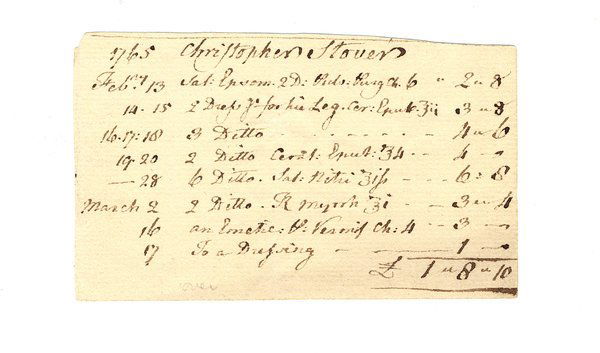 1765 Christopher Stover
Feb.ry 13 Sal: Epsom. 2D: Pulv: Purg Ch 6 " 2 " 8
14 - 15 2 Dress.gs for his Leg. Cer: Epulot ʒii 3 " 8
16. 17. 18 3 Ditto - - - - - - - 4 " 6
19. 20 2 Ditto Cerat: Epulot: ʒ4 - - 4 - 
— 28 6 Ditto. Sal: Nitri - - 6 : 8
March 2 2 Ditto. R Myrrh ʒi - - 3 " 4
16 an Emetic: & Vermif Ch: 4 - - 3 - 
17 To a Dressing - - 1 - 
£ 1 " 8 " 10
over